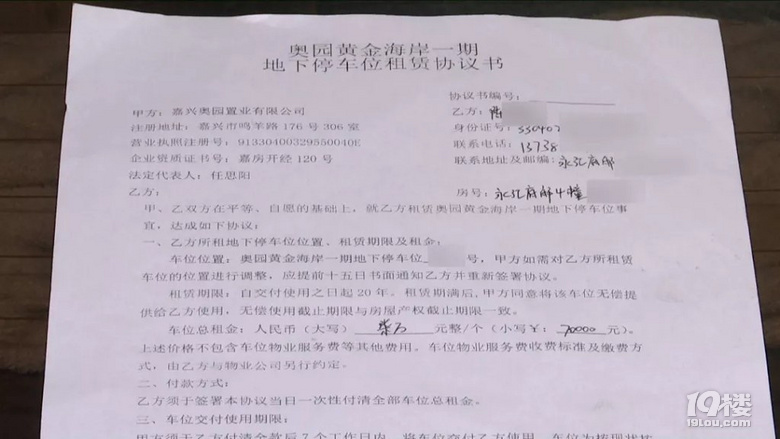 奥园黄金海岸一期
地下停车位租赁协议书
协议书编号:
甲方:嘉兴奥园置业有限公司
乙方:陆
注册地址:嘉兴市鸣羊路 176 号 306 室
身份证号:330407
营业执照注册号:91330400329550040E
联系电话:13738
企业资质证书号:嘉房开经 120 号
联系地址及邮编:永弘府邸
法定代表人:任思阳
乙方:
房号:永弘府邸4幢
甲、乙双方在平等、自愿的基础上,就乙方租赁奥园黄金海岸一期地下停车位事
宜,达成如下协议:
一、乙方所租地下停车位位置、租赁期限及租金:
车位位置:奥园黄金海岸一期地下停车位 号,甲方如需对乙方所租赁
车位的位置进行调整,应提前十五日书面通知乙方并重新签署协议。
租赁期限:自交付使用之日起 20 年。租赁期满后,甲方同意将该车位无偿提
供给乙方使用,无偿使用截止期限与房屋产权截止期限一致。
车位总租金:人民币(大写) 柒万 元整/个(小写¥: 70000 元)。
上述价格不包含车位物业服务费等其他费用。车位物业服务费收费标准及缴费方
式,由乙方与物业公司另行约定。
二、付款方式:
乙方须于签署本协议当日一次性付清全部车位总租金。
三、车位交付使用期限:
甲方须于乙方付清全款后 7 个工作日内,将车位交付乙方使用,车位为按现状
19楼
19lou.com